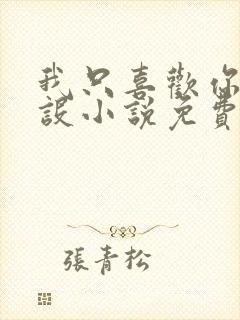 我只喜歡你
設小說免費
張青松